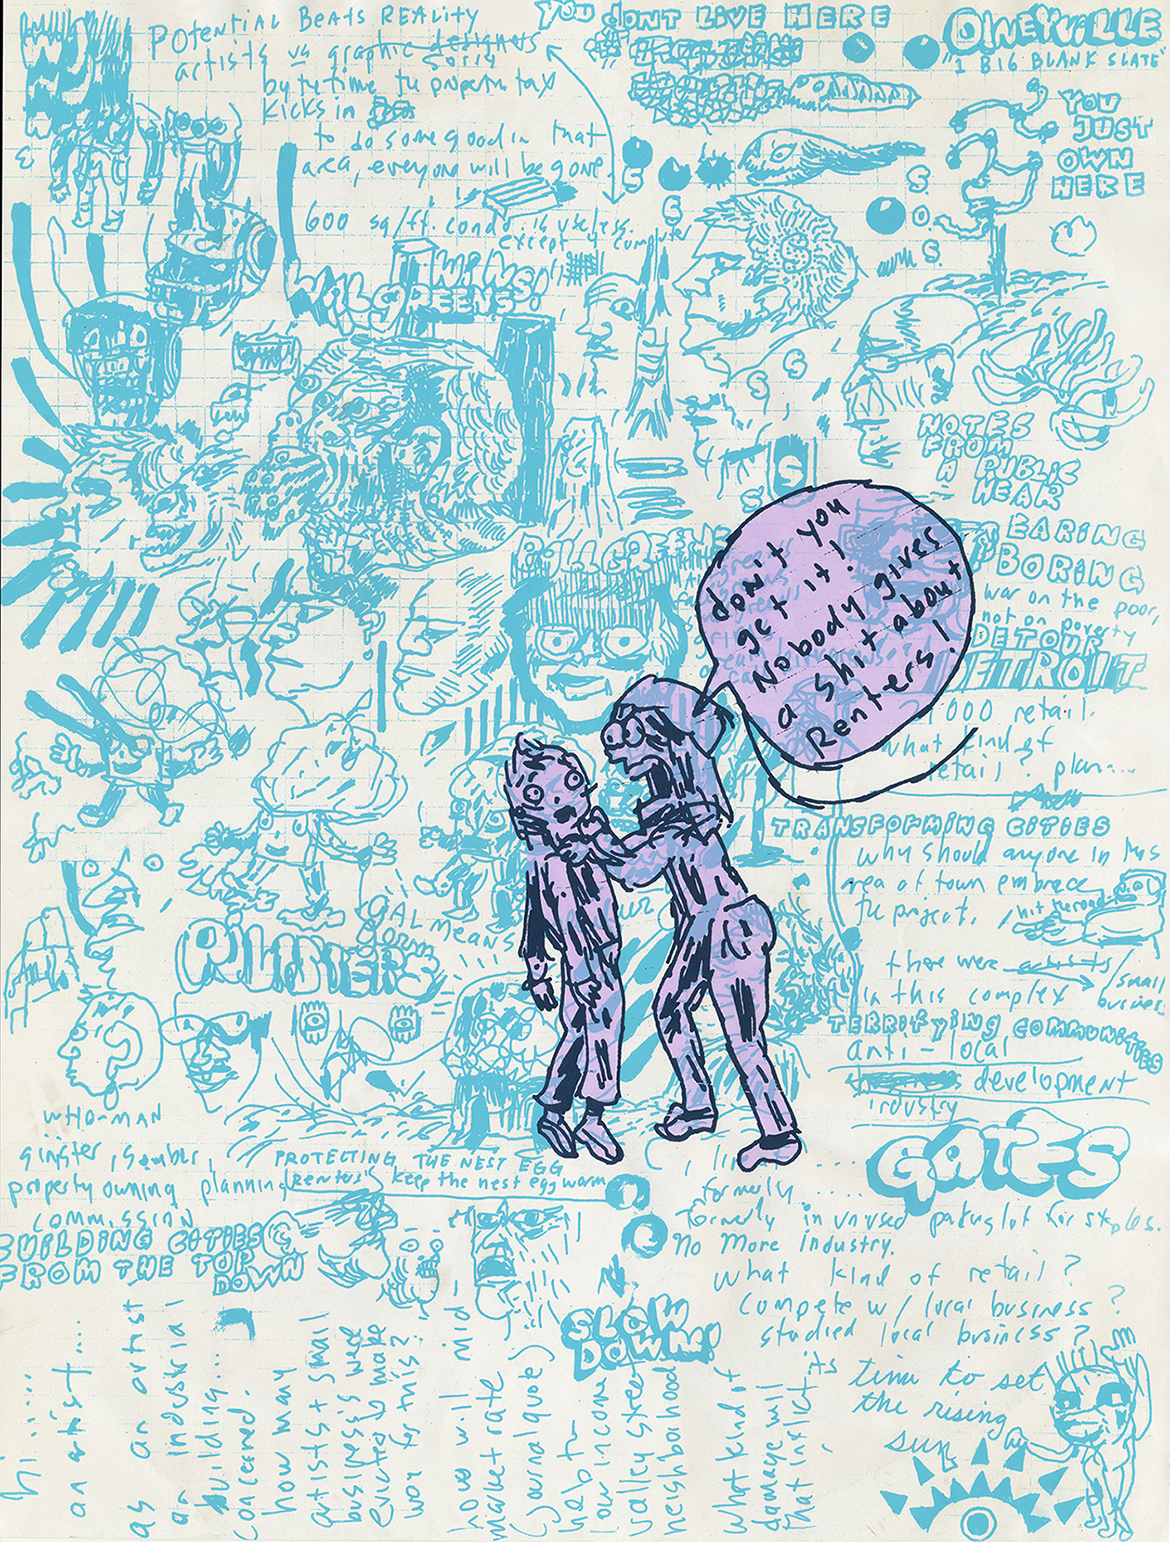 POTENTIAL BEATS REALITY
artists vs graphic designers
sorry
by the time the property tax
kicks in
to do some good in that
area, everyone will be gone.
600 sq/ft. condo. is useless.
except 4 computer
WALGREENES WINS!
YOU DONT LIVE HERE
OLNEYVILLE
"1 BIG BLANK SLATE"
YOU
JUST
OWN
HERE
S
S
S
S.
O.
S.
S
S
S
S
NOTES
FROM
A PUBLIC
HEAR
EARING
BORING
war on the poor,
not on poverty
DETOUR
DETROIT
don't you
get it!
Nobody gives
a shit about
Renters!
000 retail.
what kind of
retail? plan...
TRANSFORMING CITIES
why should anyone in this
area of town embrace
the project.
hit the road
there were artists/small
business
in this complex
TERRIFYING COMMUNITIES
anti-local
development
industry
GATES
GAL MEANS
PILLSTERS
WHO-MAN
PROTECTING THE NEST EGG
property owning planning
commission
RENTERS keep the nest egg warm
BUILDING CITIES
FROM THE TOP
DOWN
formerly .....
formerly in unused parking lot for staples.
No More industry.
what kind of retail?
compete w/ local business?
studied local business?
SLOW
DOWN!
its
time to set
the rising
sun
hi.....
an artist....
as an artist
in industrial
building...
concerned.
how many
artists + small
business's were
evicted to make
way for this?
how will mid-
market rate
(journal quote)
help
low income
valley street
neighborhood
what kind of
damage will
that inflict